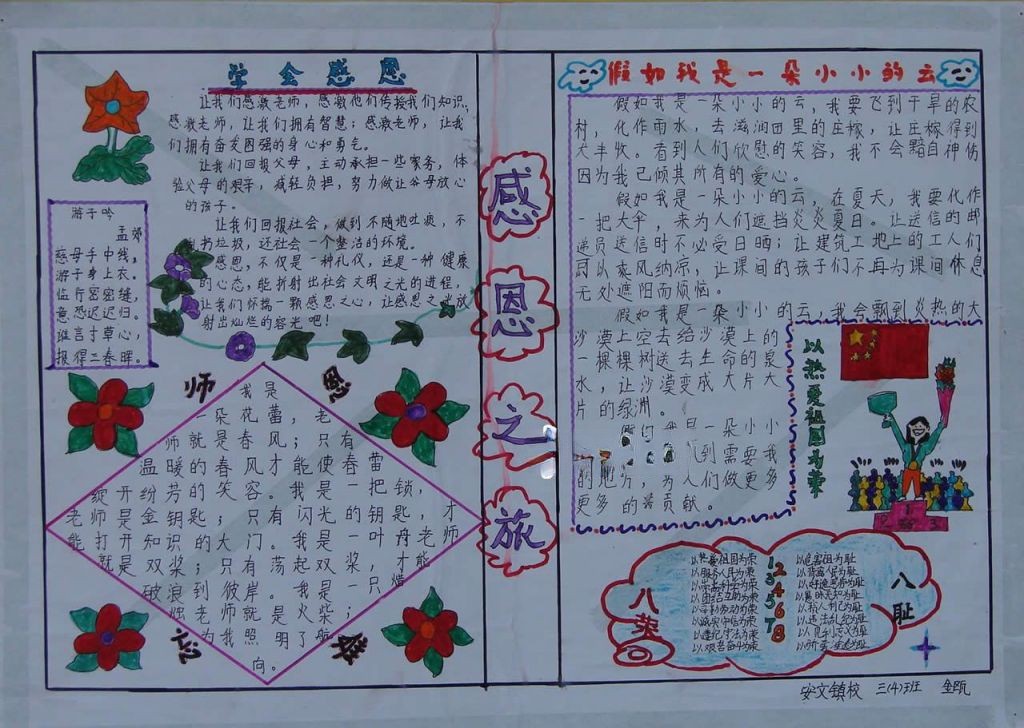 学会感恩
让我们感激老师，感激他们传授我们知识
感激老师，让我们拥有智慧；感激老师，让我
们拥有奋发图强的身心和勇气。
让我们回报父母，主动承担一些家务，体
验父母的艰辛，减轻负担，努力做让爷母放心
的孩子。
让我们回报社会，做到不随地吐痰，不
扔垃圾，还社会一个整洁的环境。
感恩，不仅是一种礼仪，还是一种健康
的心态，能折射出社会文明之光的进程，
让我们怀揣一颗感恩之心，让感恩之光放
射出灿烂的容光吧！
游子吟
孟郊
慈母手中线，
游子身上衣。
临行密密缝，
意恐迟迟归。
谁言寸草心，
报得三春晖。
师恩
我是
一朵花蕾，老
师就是春风；只有
温暖的春风才能使春蕾
绽开纷芳的笑容。我是一把锁，
老师是金钥匙；只有闪光的钥匙，才
能打开知识的大门。我是一叶舟老师
就是双桨；只有荡起双桨，才能
破浪到彼岸。我是一只蜡
烛老师就是火柴；
为我照明了航
向。
感恩之旅
假如我是一朵小小的云
假如我是一朵小小的云，我要飞到干旱的农
村，化作雨水，去滋润田里的庄稼，让庄稼得到
大丰收。看到人们欣慰的笑容，我不会黯自神伤
因为我已倾其所有的爱心。
假如我是一朵小小的云，在夏天，我要化作
一把大伞，来为人们遮挡炎炎夏日。让送信的邮
递员送信时不必受日晒；让建筑工地上的工人们
可以乘风纳凉，让课间的孩子们不再为课间休息
无处遮阳而烦恼。
假如我是一朵小小的云，我会飘到炎热的大
沙漠上空去给沙漠上的
一棵棵树送去生命的泉
水，让沙漠变成大片大
片的绿洲。
是一朵小小
到需要我
的地方，为人们做更多
更多的贡献。
以热爱祖国为荣
1
2
3
八荣
以热爱祖国为荣
以服务人民为荣
以团结互助为荣
以辛勤劳动为荣
以诚实守信为荣
以遵纪守法为荣
以艰苦奋斗为荣
1
2
3
4
5
6
7
8
以危害祖为耻
以愚昧无知为耻
以损人利己为耻
以违法乱纪为耻
以见利忘义为耻
八耻
安文镇校 三(4)班